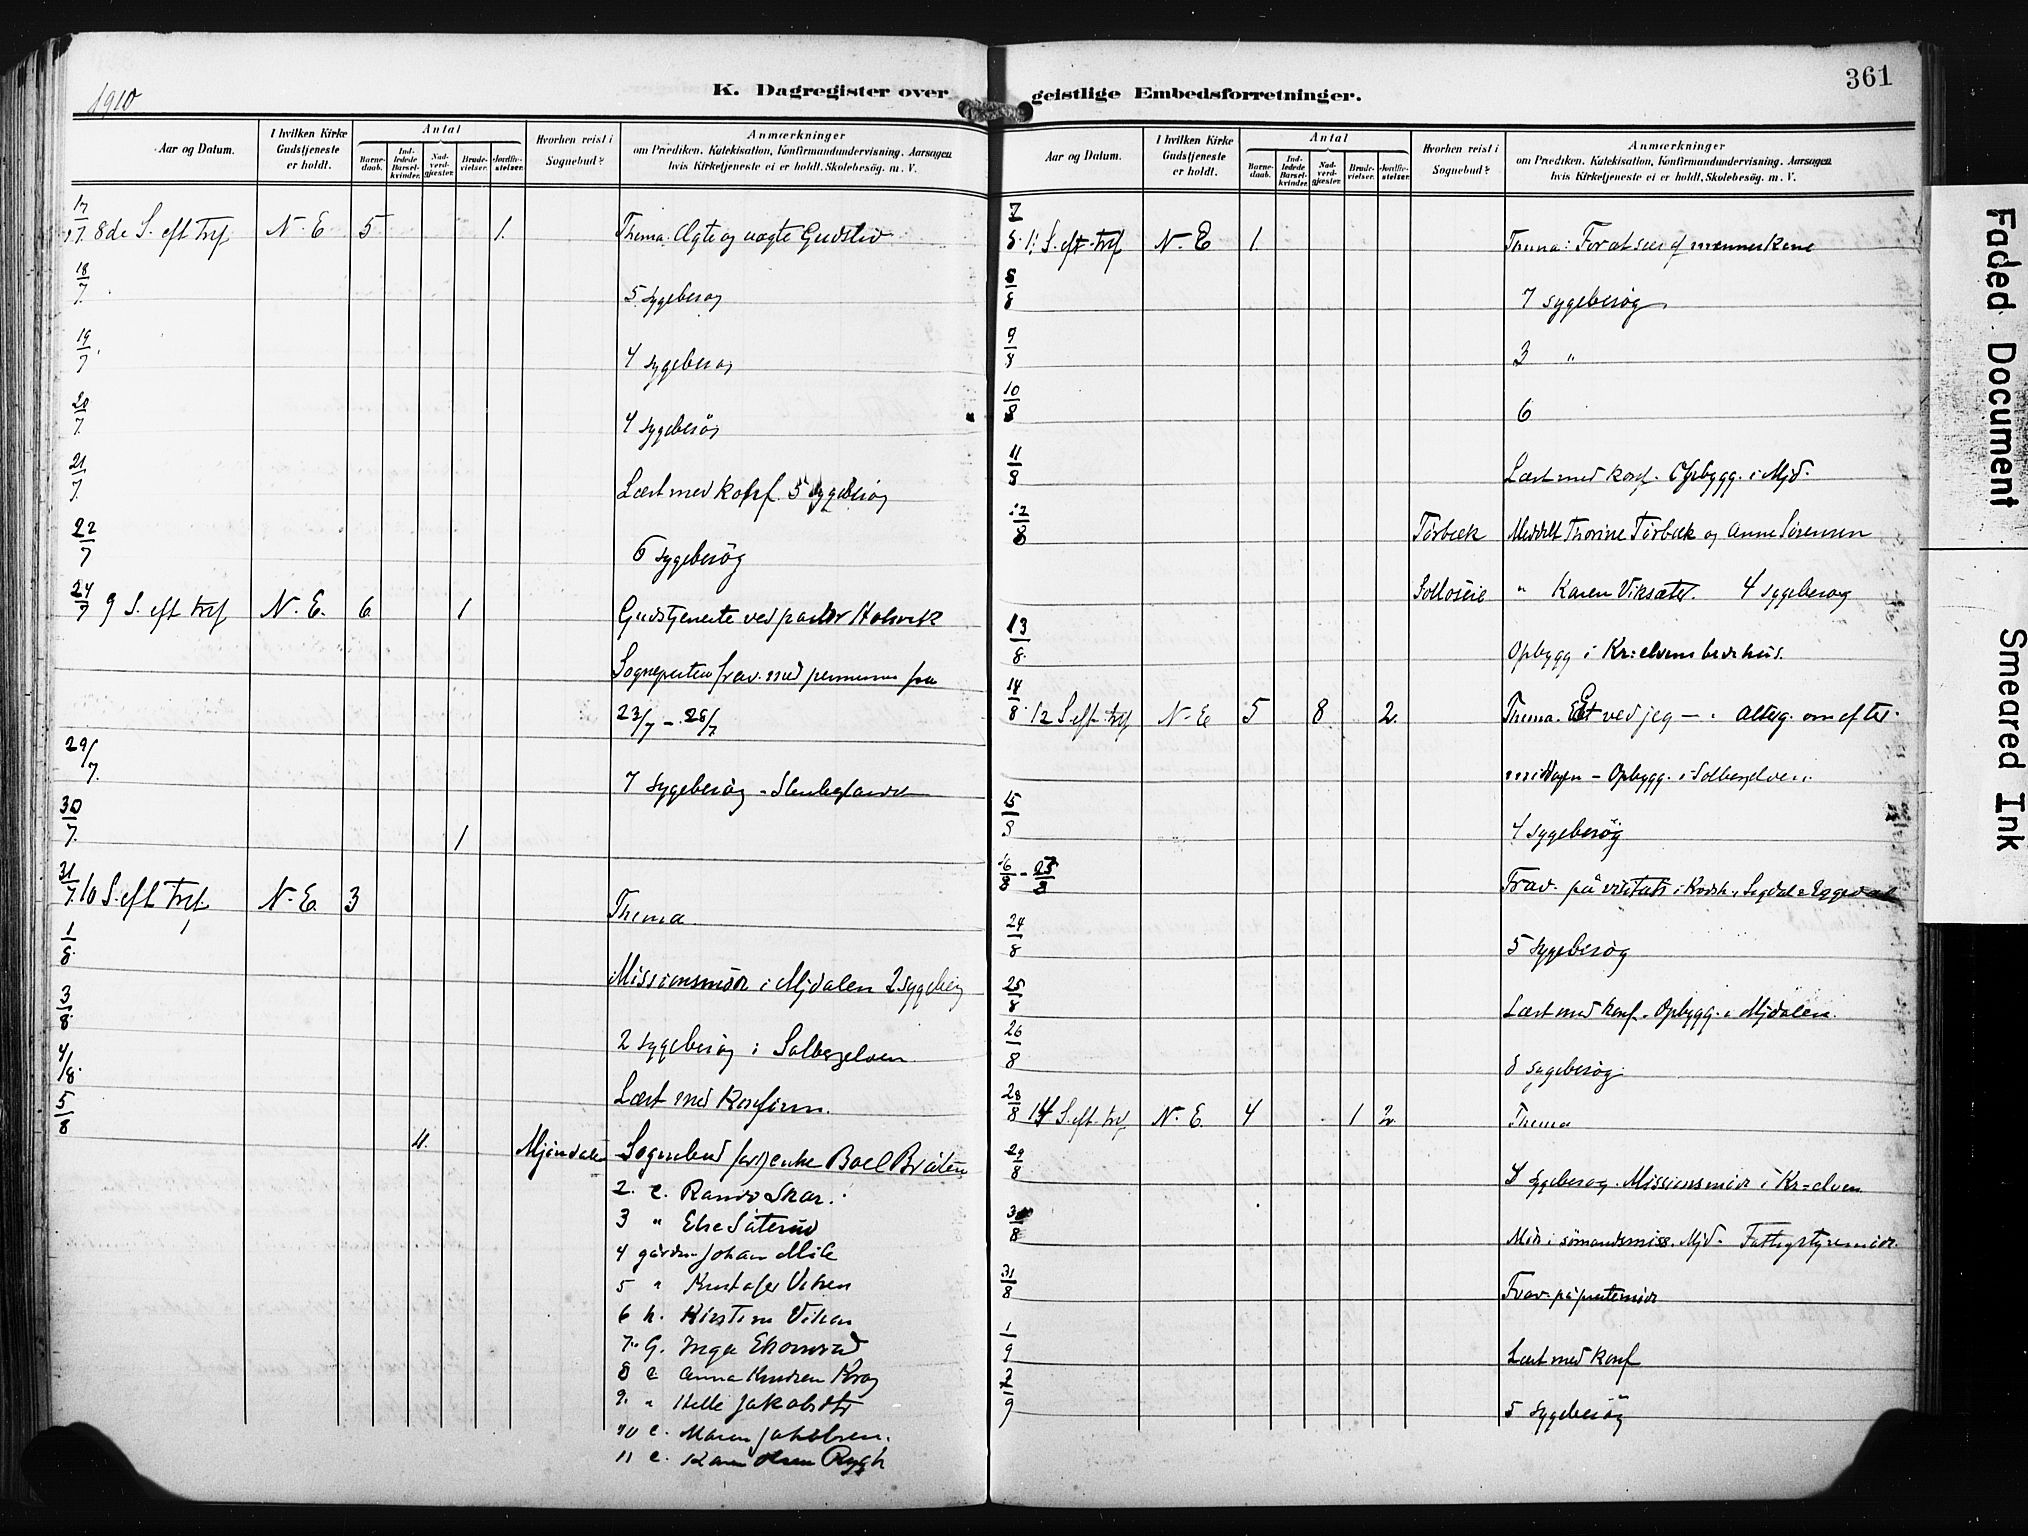 1910
K. Dagregister over
Aar og Datum.
I hvilken Kirke Gudstjeneste er holdt.
Antal
Barnedaab.
Indledede Barselkvinder.
Nadverdgjæster.
Brudevielser.
Jordfæstelser.
Hvorhen reist i Sognebud?
Anmærkninger
om Prædiken, Katekisation, Konfirmandundervisning, Aarsagen
hvis Kirketjeneste ei er holdt, Skolebesøg, m. V.
17/7. 8de S. eft tref N. E 5 1. Thema. Ægte og uægte Gudsliv
18/7. 5 sygebesøg
19/7. 4 sygebesøg
20/7. 4 sygebesøg
21/7. Læst med konf. 5 sygebesøg
22/7 6 sygebesøg
24/7 9 S. eft tref N. E. 6 1 Gudstjeneste ved pastor
Sognepresten frav. med permission fra
23/7 - 28/7
29/7. 7 sygebesøg
30/7. 1
31/7. 10 S. eft tref. N. E. 3 Thema
1/8. Missionsmøde i Mjdalen 2 sygebesøg
3/8. 2 sygebesøg i Solbergelven
4/8. Læst med Konfirm.
5/8
11. Mjøndalen Sognebud enke Boel Bråten
2. e. Randi Skar.
3 " Else Säterud
4 gårdm. Johan Mile
5 " Viken
6 h. Kirstine Viken
7. G. Inga
8 e Anna Knudsen Krog
9. " Helle Jakobsdtr
10 e. Maren Jakobsen.
11 e. Karen Olsen Rygh
361
geistlige Embedsforretninger.
Aar og Datum.
I hvilken Kirke Gudstjeneste er holdt.
Antal
Barnedaab.
Indledede Barselkvinder.
Nadverdgjæster.
Brudevielser.
Jordfæstelser.
Hvorhen reist i Sognebud?
Anmærkninger
om Prædiken, Katekisation, Konfirmandundervisning, Aarsagen
hvis Kirketjeneste ei er holdt, Skolebesøg, m. V.
7/8. 11 S. eft. tref N. E 1 Thema: For at sees af menneskene
8/8 7 sygebesøg
9/8 3 "
10/8 6
11/8 Læst med konf. Opbygg. i Mjd.
12/8 Tørbæk Meddelt Thorine Tørbæk og Anne Sørensen
Solloseie " Karen Viksæter. 4 sygebesøg
13/8. Opbygg i Kr=elvens bedehus.
14/8. 12 S. eft. tref N. E 5 8 2. Thema. Et ved jeg — . Alterg. om efter-
middagen - Opbygg. i Solbergelven.
15/8 4 sygebesøg
16/8 - 23/8 Frav. på visitats i Krødsh., Sigdal & Eggedal
24/8 5 sygebesøg
25/8 Læst med konf. Opbygg. i Mjdalen.
26/8 8 sygebesøg
28/8 14 S. eft. tref N. E. 4 1 2. Thema
29/8 4 sygebesøg. Missionsmøde i Kr=elven
30/8 Møde i sømandsmiss. Mjd. Fattigstyremøde.
31/8 Frav. på prestemøde
1/9 Læst med konf
2/9 5 sygebesøg
Faded Document
Smeared Ink